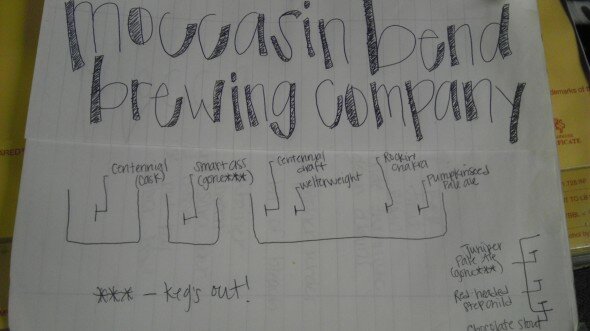 moccasin bend
brewing company
Centennial
(cask)
smart ass
(gone***)
Centennial
draft
Welterweight
Rockin'
Chakra
Pumpkinseed
Pale ale
Juniper
Pale Ale
(gone***)
Red headed
Step Child
Chocolate stout
*** - keg's out!